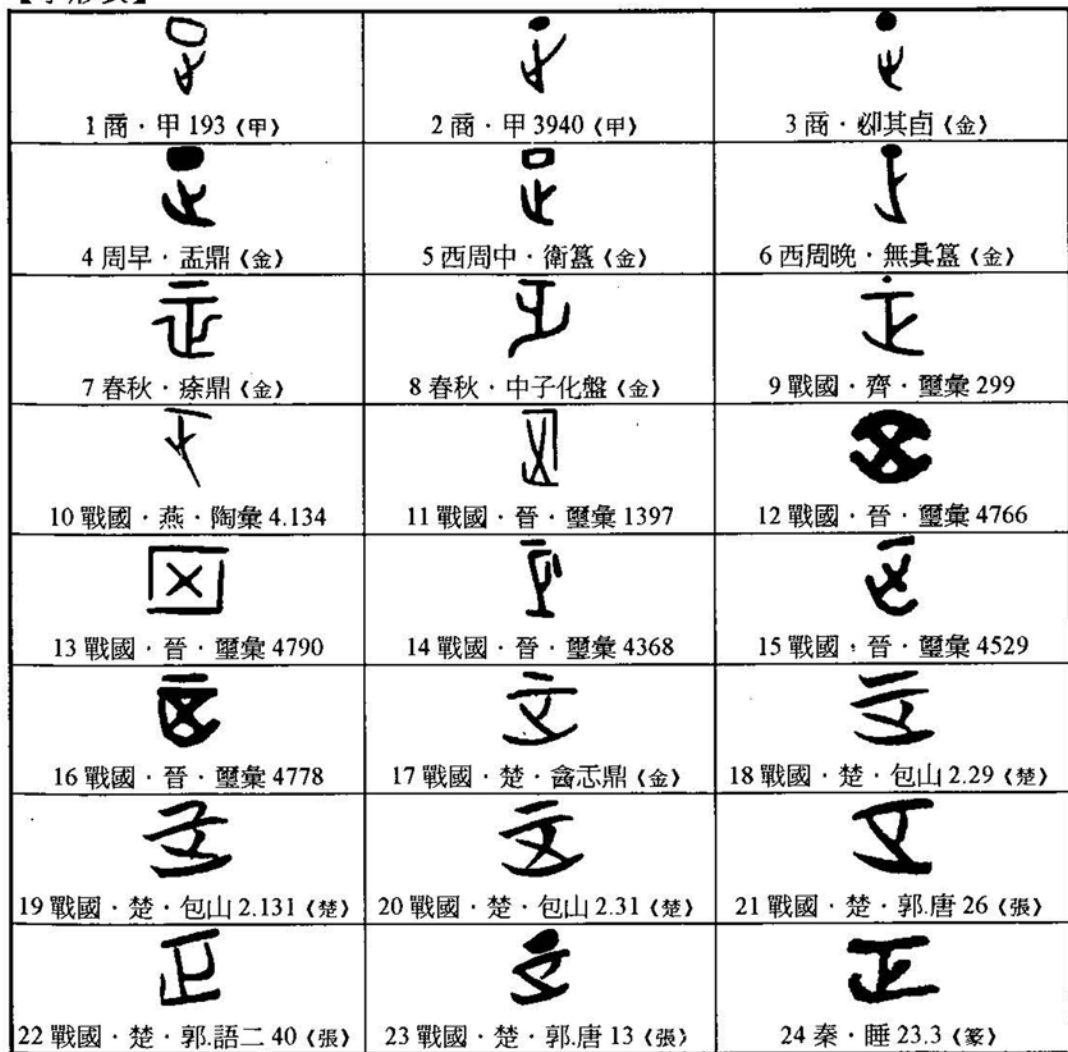 1 商．甲 193《甲》 2 商．甲 3940《甲》 3 商．卯其卣《金》
4 周早．盂鼎《金》 5 西周中．衛簋《金》 6 西周晚．無㠱簋《金》
7 春秋．瘵鼎《金》 8 春秋．中子化盤《金》 9 戰國．齊．璽彙 299
10 戰國．燕．陶彙 4.134 11 戰國．晉．璽彙 1397 12 戰國．晉．璽彙 4766
13 戰國．晉．璽彙 4790 14 戰國．晉．璽彙 4368 15 戰國．晉．璽彙 4529
16 戰國．晉．璽彙 4778 17 戰國．楚．酓忎鼎《金》 18 戰國．楚．包山 2.29《楚》
19 戰國．楚．包山 2.131《楚》 20 戰國．楚．包山 2.31《楚》 21 戰國．楚．郭.唐 26《張》
22 戰國．楚．郭.語二 40《張》 23 戰國．楚．郭.唐 13《張》 24 秦．睡 23.3《篆》